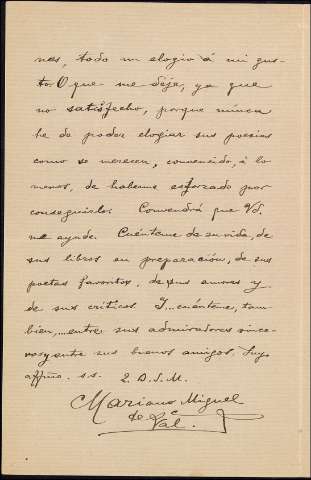 nes, todo un elogio á mi gus-
to. O que me deje, ya que
no satisfecho, porque nunca
he de poder elogiar sus poesias
como se merecen, convencido, á lo
menos, de haberme esforzado por
conseguirlo. Convendrá que Vd.
me ayude. Cuénteme de su vida, de
sus libros en preparación, de sus
poetas favoritos, de sus amores y
de sus criticos. Y... cuénteme, tam-
bien,... entre sus admiradores since-
ros y entre sus buenos amigos. Suyo
affmo. s.s. Q. B. S. M.
Mariano Miguel
de Val.